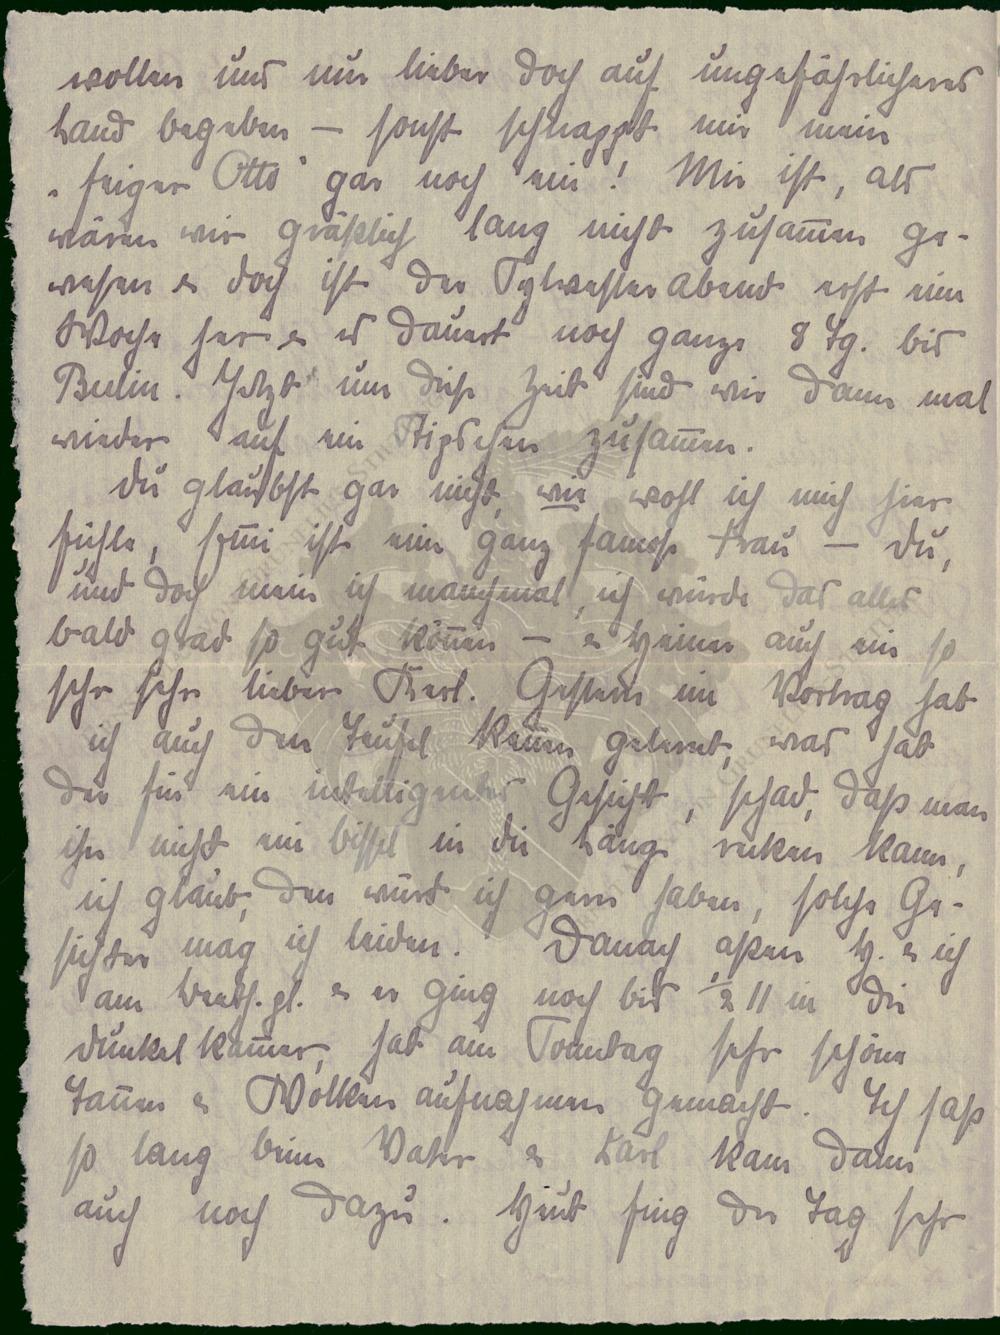 wollen und nun lieber doch auf ungefährlicheres
Land begeben – sonst schnappt mir mein
„feiger Otto“ gar noch ein! Mir ist, als
wären wir gräßlich lang nicht zusam̄en ge-
wesen & doch ist der Sylvesterabend erst eine
Woche her & es dauert noch ganze 8 Tg. bis
Berlin. Jetzt um diese Zeit sind wir dann mal
wieder auf ein zusam̄en.
Du glaubst gar nicht, wie wohl ich mich hier
fühle, ist eine ganz famose Frau – Du,
und doch mein ich manchmal, ich würde das alles
bald grad so gut kön̄en – & Heiner auch ein so
sehr sehr lieber Kerl. Gestern im Vortrag hab
ich auch den Teufel ken̄en gelernt, was hat
der für ein intelligentes Gesicht, schad, daß man
ihn nicht ein bissel in die Länge recken kann,
ich glaub, den würd ich gern haben, solche Ge-
sichter mag ich leiden. Danach aßen H. & ich
am & er ging noch bis ½ 11 in die
Dunkelkam̄er, hat am Sonntag sehr schöne
Tan̄en & Wolkenaufnahmen gemacht. Ich saß
so lang beim Vater & Karl kam dann
auch noch dazu. Heut fing der Tag sehr